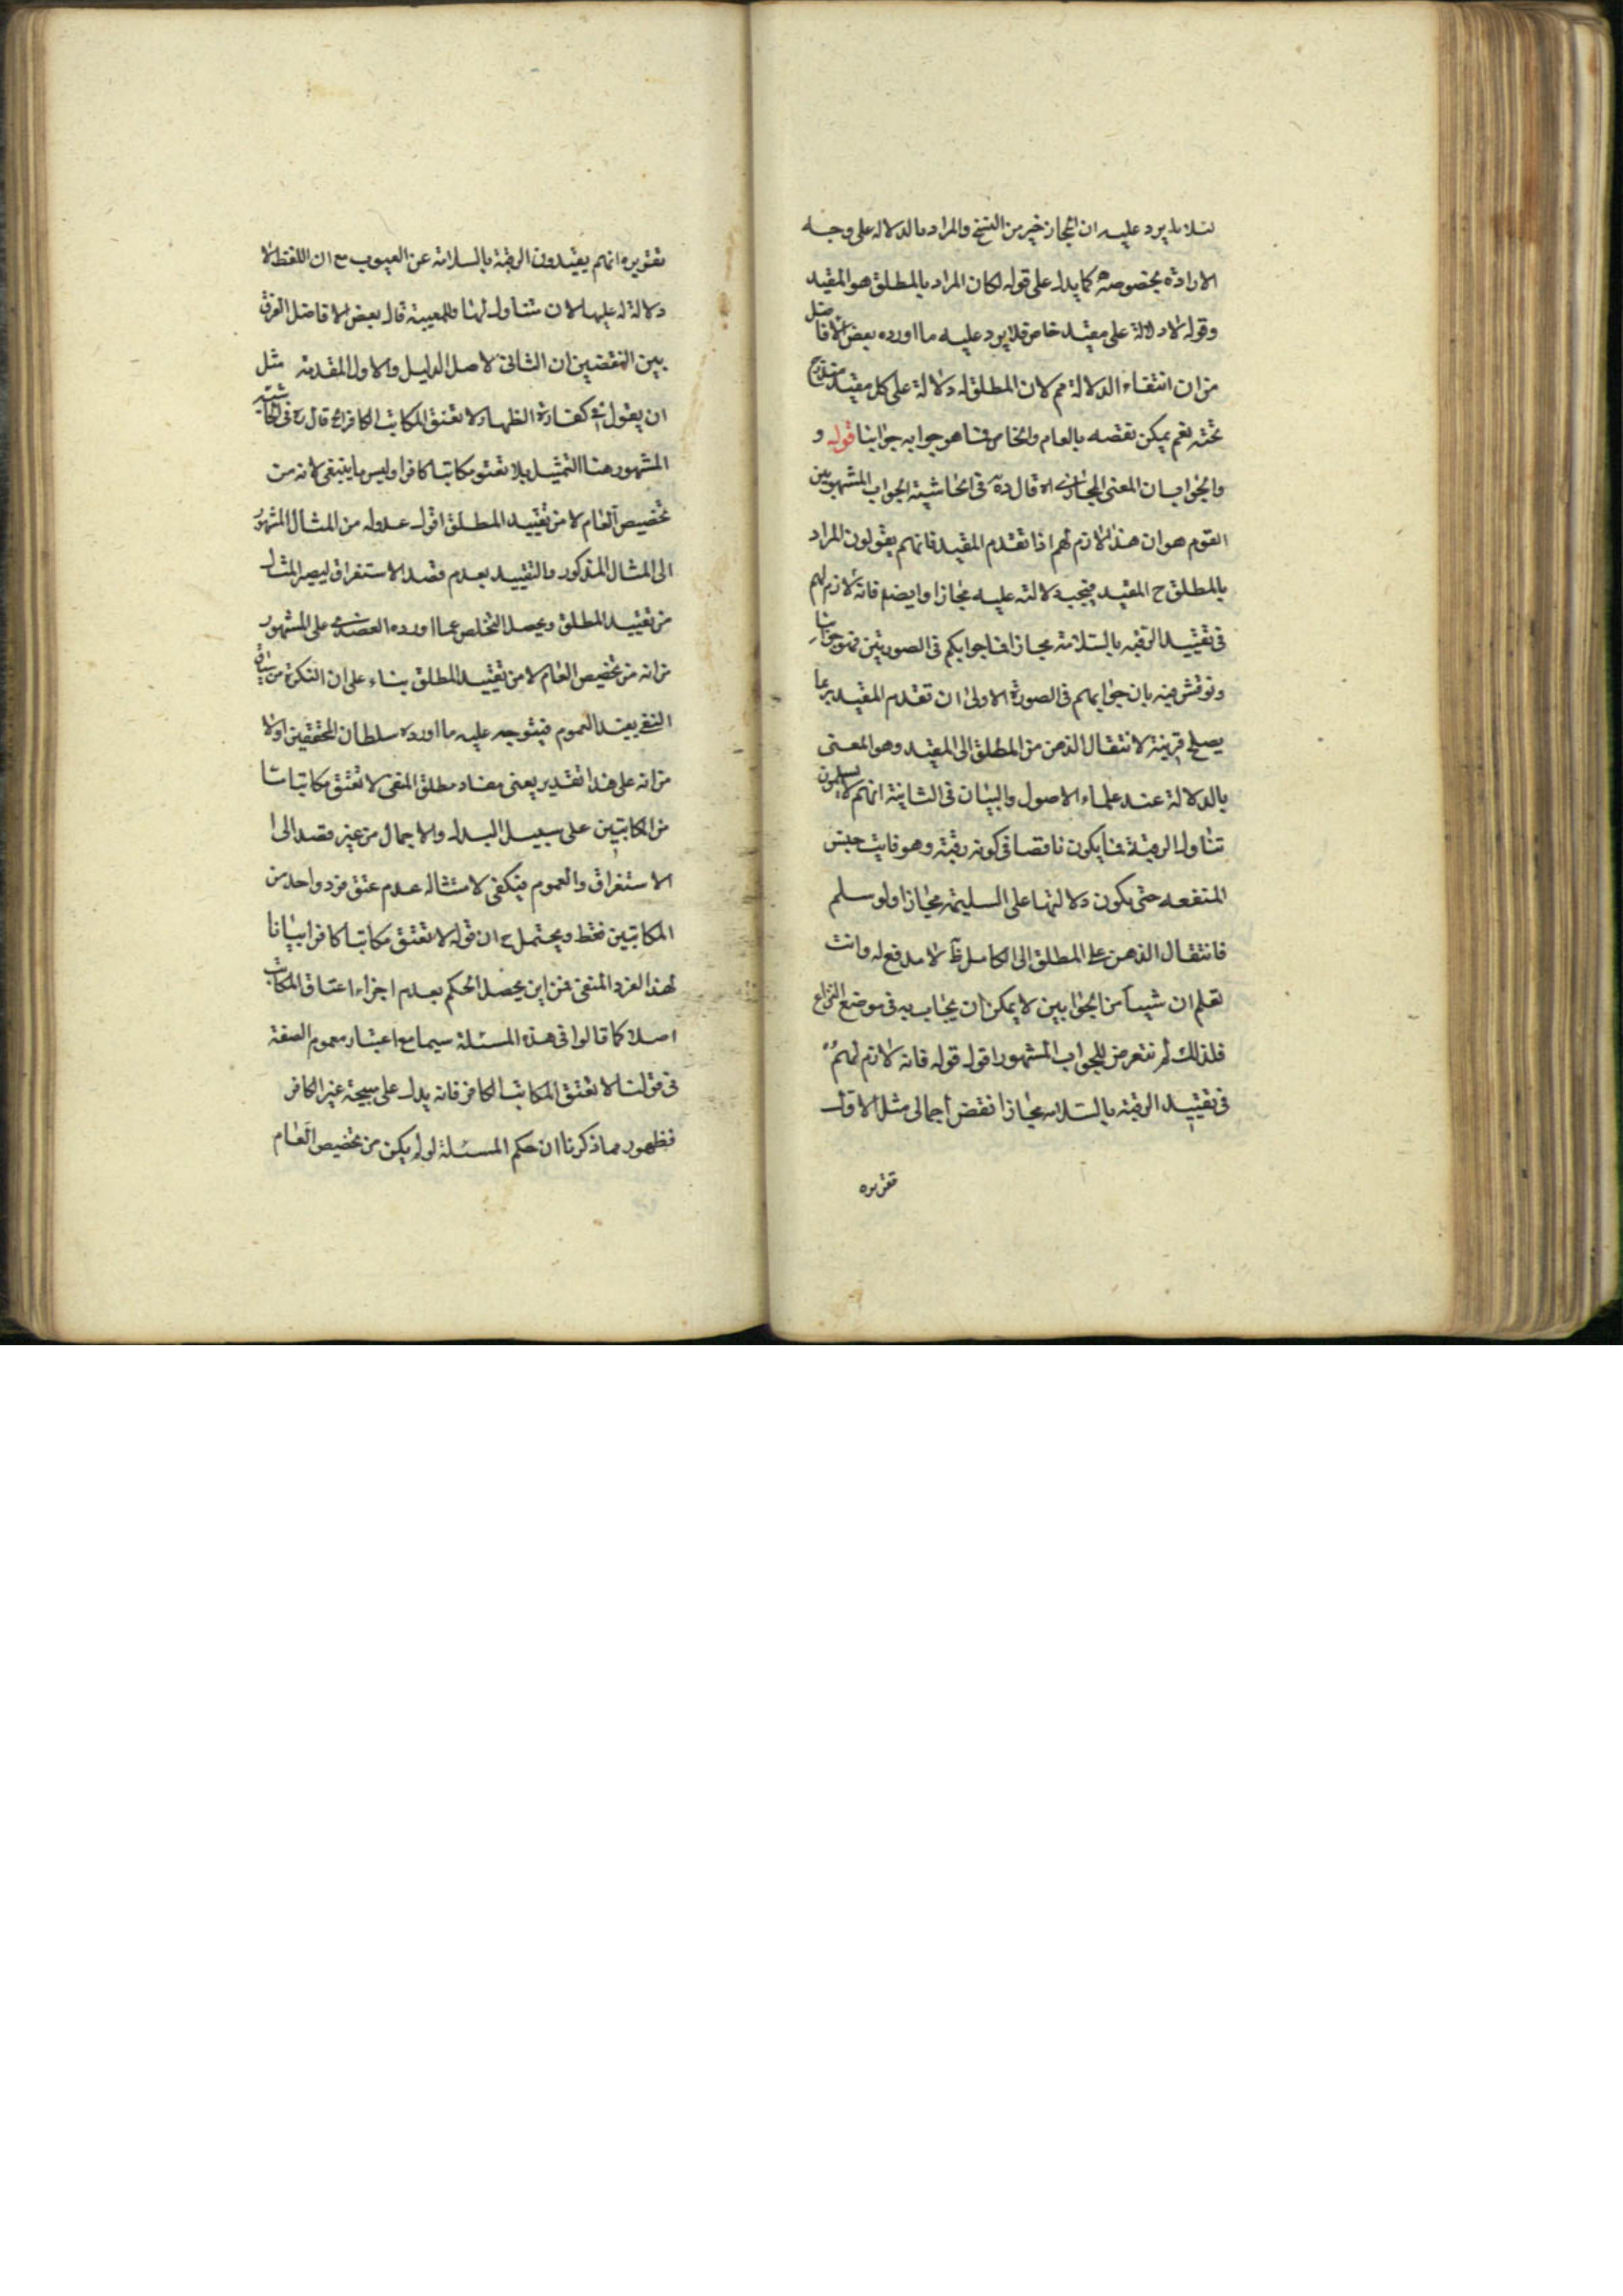 لئلا يرد عليه ان المجاز خير من النسخ والمراد بالدلالة على وجه
الارادة بخصوصه كما يدل على قوله لكان المراد بالمطلق هو المقيد
وقوله لا دلالة على مقيد خاص فلا يرد عليه ما اورده بعض الافاضل
من ان انتفاء الدلالة مم لان المطلق له دلالة على كل مقيد مندرج
تحته نعم يمكن نقضه بالعام والخاص فما هو جوابه جوابنا قوله و
والجواب ان المعنى المجازى اه قال ره فى الحاشية الجواب المشهور بين
القوم هو ان هذا لازم لهم اذا تقدم المقيد فانهم يقولون المراد
بالمطلق ح المقيد فيجب دلالته عليه مجازا وايضا فانه لازم لهم
فى تقييد الرقبه بالسلامة مجازا فما جوابكم فى الصورتين فهو جوابنا
ونوقش فيه بان جوابهم فى الصورة الاولى ان تقدم المقيد ربما
يصلح قرينة لانتقال الذهن من المطلق الى المقيد وهو المعنى
بالدلالة عند علماء الاصول والبيان فى الثانية انهم لا يسلمون
تناول الرقبة فما يكون ناقصا فى كونه رقبة وهو فايت جنس
المنفعه حتى يكون دلالتها على السليمة مجازا ولو سلم
فانتقال الذهن على المطلق الى الكامل ظ لا مدفع له وانت
تعلم ان شيئا من الجوابين لا يمكن ان يجاب به فى موضع النزاع
فلذلك لم نتعرض للجواب المشهور اقول قوله فانه لازم لهم
فى تقييد الرقبة بالسلامه مجازا نقض اجمالى مثل الاول
تقريره
تقريره انهم يقيدون الرقبة بالسلامة عن العيوب مع ان اللفظ لا
دلالة له عليها لان متناول لها وللمعيبة قال بعض الافاضل الفرق
بين النقضين ان الثانى لاصل الدليل والاول لمقدمة مثل
ان يقول فى كفارة الظهار لا تعتق المكاتب الكافر اه قال ره فى الحاشية
المشهور هنا التمثيل بلا تعتق مكاتبا كافرا وليس ما ينبغى لانه من
تخصيص العام لا من تقييد المطلق اقول عدوله من المثال المشهور
الى المثال المذكور والتقييد بعدم قصد الاستغراق ليصير المثال
من تقييد المطلق ويحصل التخلص عما اورده العضدى على المشهور
من انه من تخصيص العام لا من تقييد المطلق بناء على ان النكرة من سياق
النفى يفيد العموم فيتوجه عليه ما اورده سلطان المحققين اولا
من انه على هذا تقدير يعنى مفاد مطلق المنفى لا تعتق مكاتبا ما
من المكاتبين على سبيل البدل والاجمال من غير قصد الى
الاستغراق والعموم فيكفى لامتثاله عدم عتق فرد واحد من
المكاتبين فقط ويحتمل ح ان قوله لا تعتق مكاتبا كافرا بيانا
لهذا الفرد المنفى فمن اين يحصل الحكم بعدم اجزاء اعتاق المكاتب
اصلا كما قالوا فى هذه المسئلة سيما مع اعتبار مفهوم الصفة
فى قولنا لا تعتق المكاتب الكافر فانه يدل على صحة غير الكافر
فظهور مما ذكرنا ان حكم المسئلة لو لم يكن من تخصيص العام